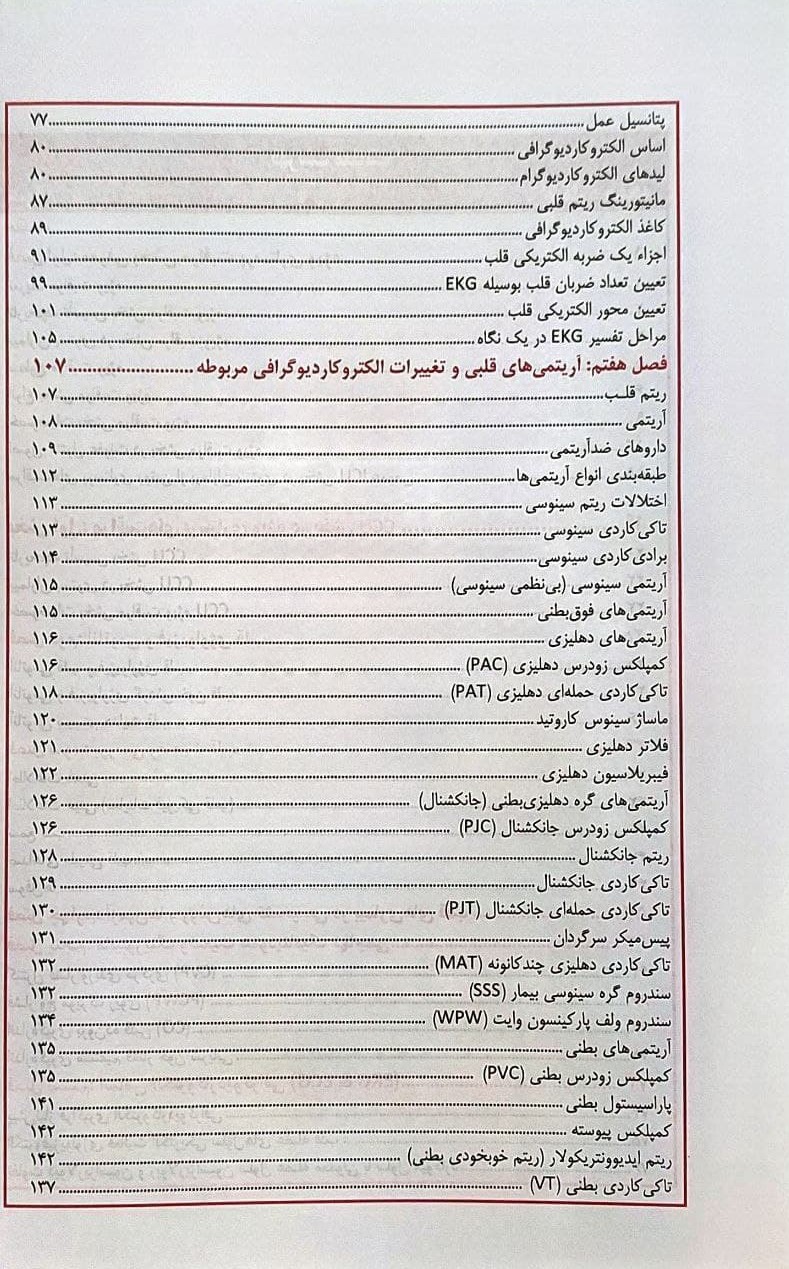 پتانسیل عمل ..... ۷۷
اساس الکتروکاردیوگرافی ..... ۸۰
لیدهای الکتروکاردیوگرام ..... ۸۰
مانیتورینگ ریتم قلبی ..... ۸۷
کاغذ الکتروکاردیوگرافی ..... ۸۹
اجزاء یک ضربه الکتریکی قلب ..... ۹۱
تعیین تعداد ضربان قلب بوسیله EKG ..... ۹۹
تعیین محور الکتریکی قلب ..... ۱۰۱
مراحل تفسیر EKG در یک نگاه ..... ۱۰۵
فصل هفتم: آریتمی‌های قلبی و تغییرات الکتروکاردیوگرافی مربوطه ..... ۱۰۷
ریتم قلب ..... ۱۰۷
آریتمی ..... ۱۰۸
داروهای ضدآریتمی ..... ۱۰۹
طبقه‌بندی انواع آریتمی‌ها ..... ۱۱۲
اختلالات ریتم سینوسی ..... ۱۱۳
تاکی‌کاردی سینوسی ..... ۱۱۳
برادی‌کاردی سینوسی ..... ۱۱۴
آریتمی سینوسی (بی‌نظمی سینوسی) ..... ۱۱۵
آریتمی‌های فوق‌بطنی ..... ۱۱۵
آریتمی‌های دهلیزی ..... ۱۱۶
کمپلکس زودرس دهلیزی (PAC) ..... ۱۱۶
تاکی‌کاردی حمله‌ای دهلیزی (PAT) ..... ۱۱۸
ماساژ سینوس کاروتید ..... ۱۲۰
فلاتر دهلیزی ..... ۱۲۱
فیبریلاسیون دهلیزی ..... ۱۲۲
آریتمی‌های گره دهلیزی‌بطنی (جانکشنال) ..... ۱۲۶
کمپلکس زودرس جانکشنال (PJC) ..... ۱۲۶
ریتم جانکشنال ..... ۱۲۸
تاکی‌کاردی جانکشنال ..... ۱۲۹
تاکی‌کاردی حمله‌ای جانکشنال (PJT) ..... ۱۳۰
پیس‌میکر سرگردان ..... ۱۳۱
تاکی‌کاردی دهلیزی چندکانونه (MAT) ..... ۱۳۲
سندروم گره سینوسی بیمار (SSS) ..... ۱۳۲
سندروم ولف پارکینسون وایت (WPW) ..... ۱۳۴
آریتمی‌های بطنی ..... ۱۳۵
کمپلکس زودرس بطنی (PVC) ..... ۱۳۵
پاراسیستول بطنی ..... ۱۴۱
کمپلکس پیوسته ..... ۱۴۲
ریتم ایدیوونتریکولار (ریتم خوبخودی بطنی) ..... ۱۴۲
تاکی‌کاردی بطنی (VT) ..... ۱۳۷